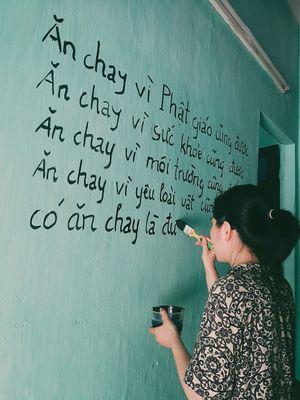 Ăn chay vì Phật giáo cũng được
Ăn chay vì sức khỏe cũng được
Ăn chay vì môi trường cũng được
Ăn chay vì yêu loài vật cũng
có ăn chay là đư